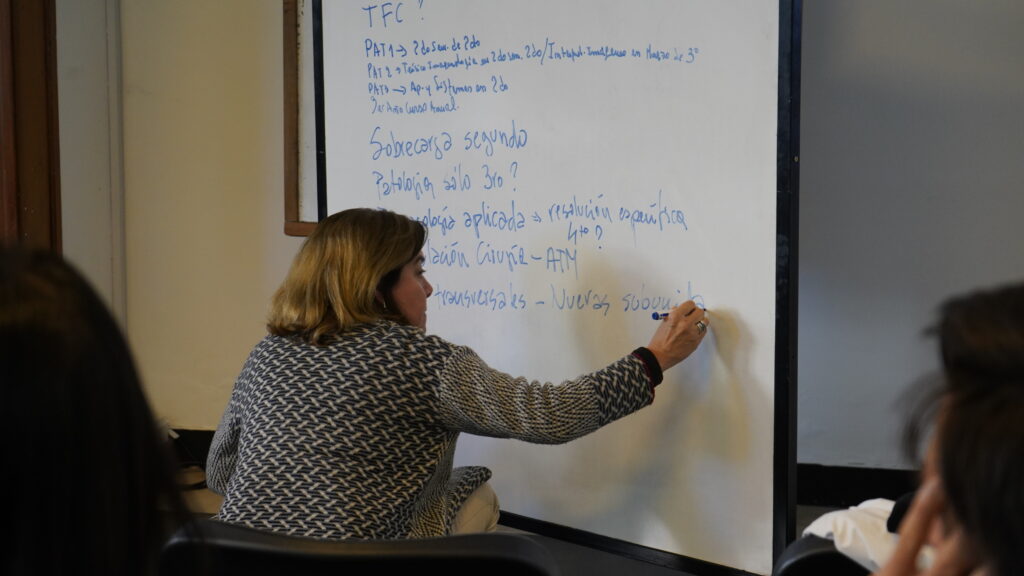 TFC?
PAT 1 → 2do Sem. de 2do
PAT 2 → Teórico Imagenología en 2do sem. 2do / Interpret. Imágenes en Marzo de 3°
PAT3 → Ap. y Sistemas en 2do
3er Año Curso Anual.
Sobrecarga segundo
Patología sólo 3ro?
ología aplicada → resolución específica
4to?
lación Cirugía - ATM
transversales - Nuevas subunida